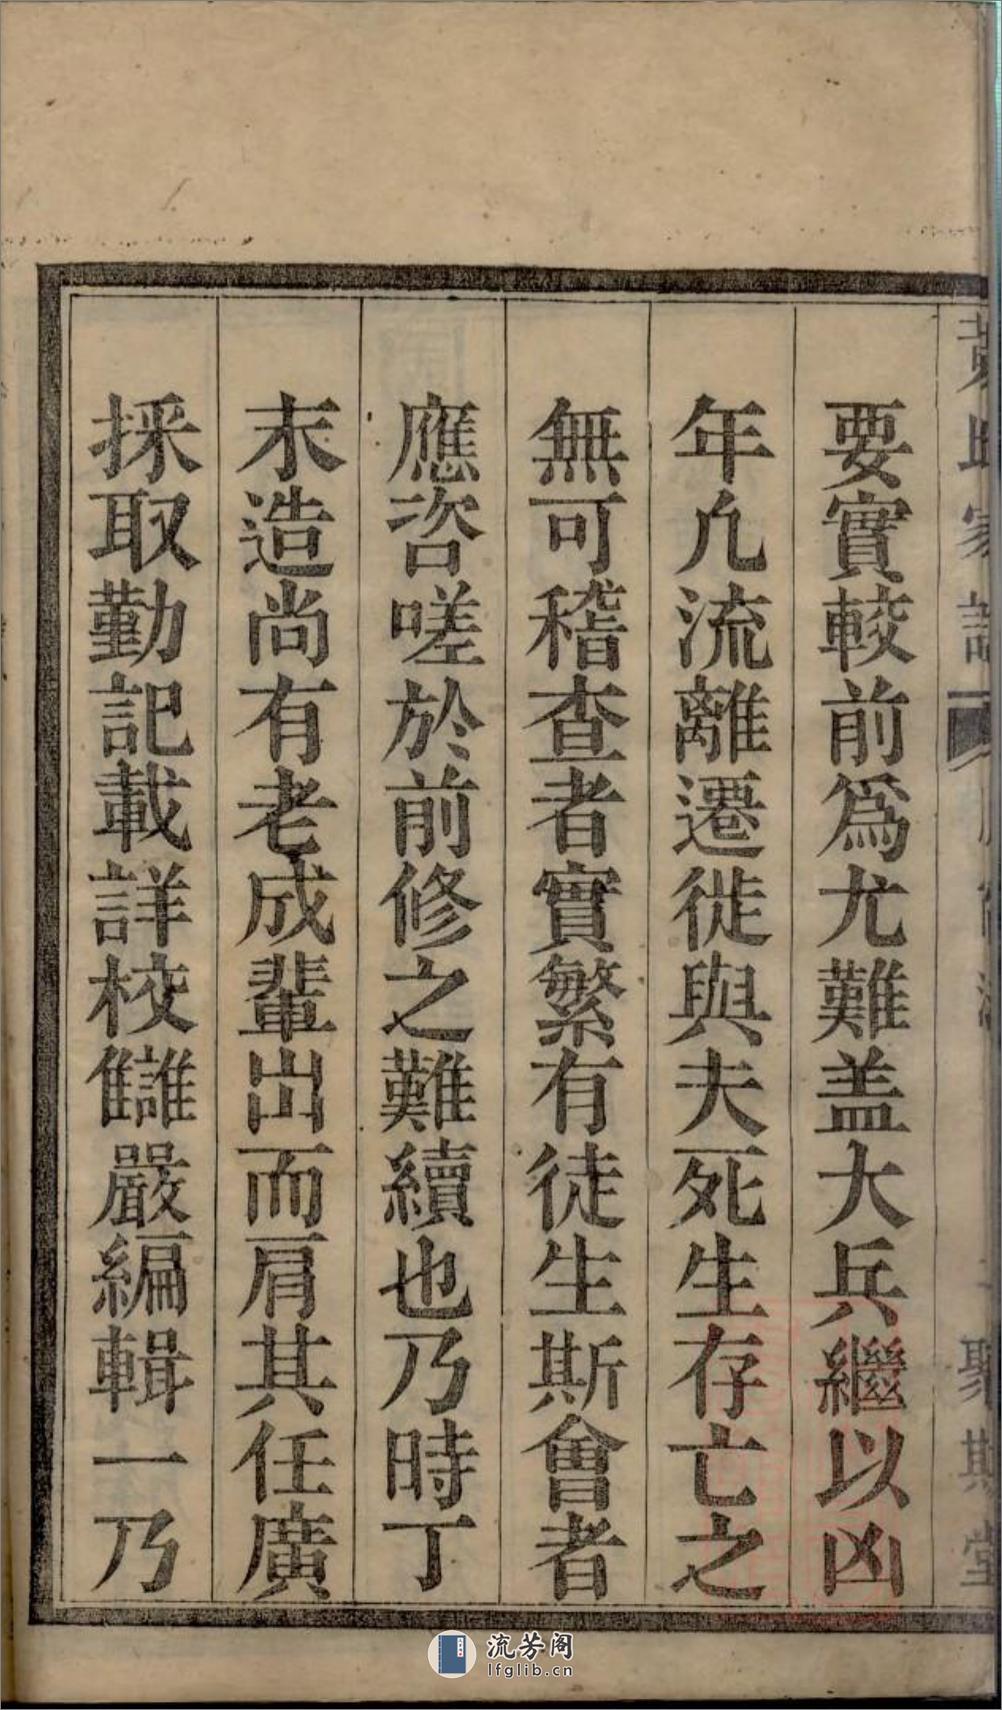 要實較前爲尤難盖大兵繼以凶
年凢流離遷徙與夫死生存亡之
無可稽查者實繁有徒生斯會者
應咨嗟於前修之難續也乃時丁
末造尚有老成輩出而肩其任廣
採取勤記載詳校讎嚴編輯一乃
聚斯堂
流芳阁
lfglib.cn